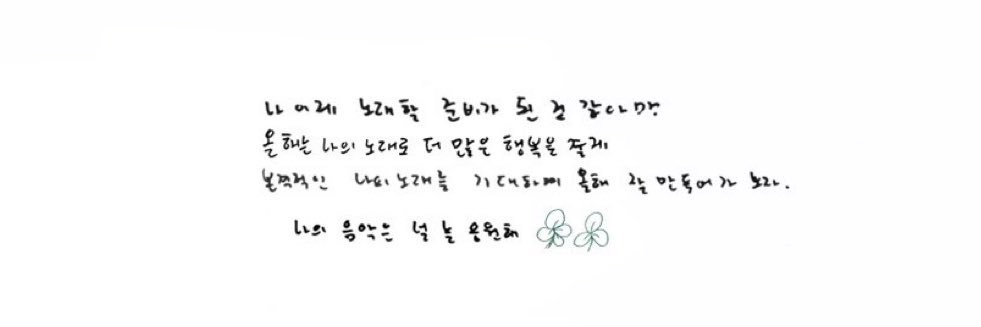 나 이제 노래할 준비가 된 것 같다만
올해는 나의 노래로 더 많은 행복을 줄게
본격적인 나의 노래를 기대하며 올해 잘 만들어가 보자.
나의 음악은 널 늘 응원해